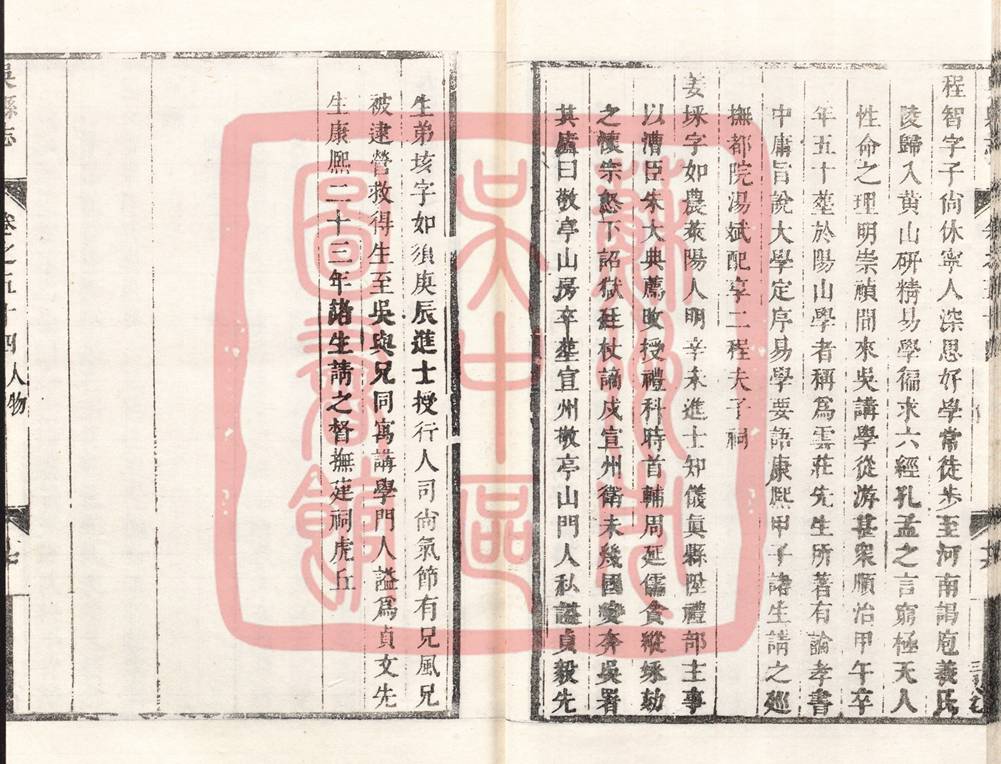 程智字子尙休寧人深思好學常徒步至河南謁庖羲氏
陵歸入黃山硏精易學徧求六經孔孟之言窮極天人
性命之理明崇禎間來吳講學從游甚衆順治甲午卒
年五十塟於陽山學者稱爲雲莊先生所著有論孝書
中庸旨說大學定序易學要語康熈甲子諸生請之廵
撫都院湯斌配享二程夫子祠
姜埰字如農萊陽人明辛未進士知儀眞縣陞禮部主事
以漕臣朱大典薦攺授禮科時首輔周延儒貪縱埰劾
之懷宗怒下詔獄廷杖謫戍宣州衛未幾國變奔吳署
其廬曰敬亭山房卒塟宣州敬亭山門人私諡貞毅先
生弟垓字如須庚辰進士授行人司尙氣節有兄風兄
被逮營救得生至吳與兄同寓講學門人諡爲貞文先
生康熈二十三年諸生請之督撫建祠虎丘
吳縣志
卷之五十四
人物
蘇州市吳中區圖書館